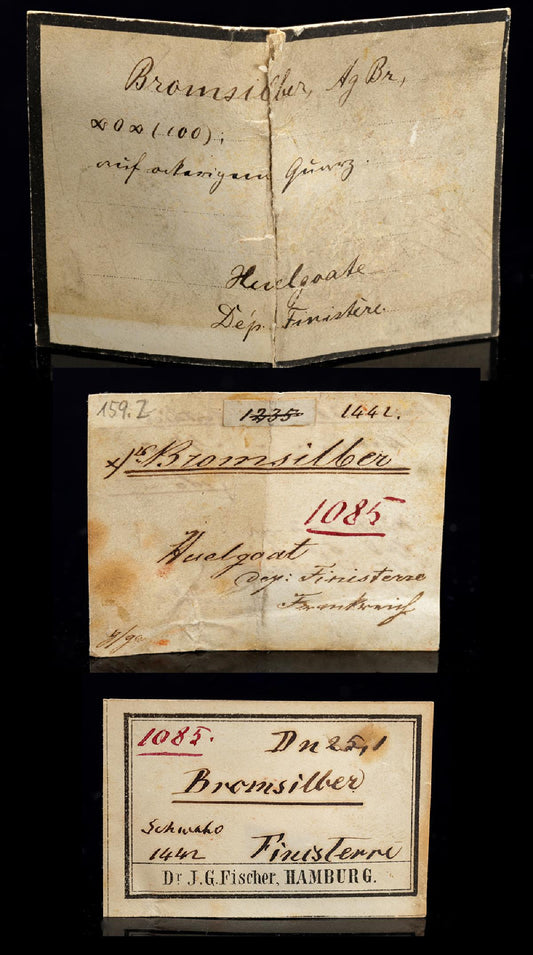 Bromsilber, AgBr,
∞O∞ (100);
auf ockerigem Quarz.
Huelgoate
Dép. Finistère.
159.Z
1235 1442.
Bromsilber
1085
Huelgoat
dep: Finisterre
Frankreich
1085. Dn 25,1
Bromsilber
Schwabo
1442 Finisterre
Dr J.G.Fischer, HAMBURG.